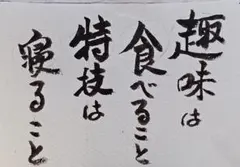 趣味は
食べること
特技は
寝ること